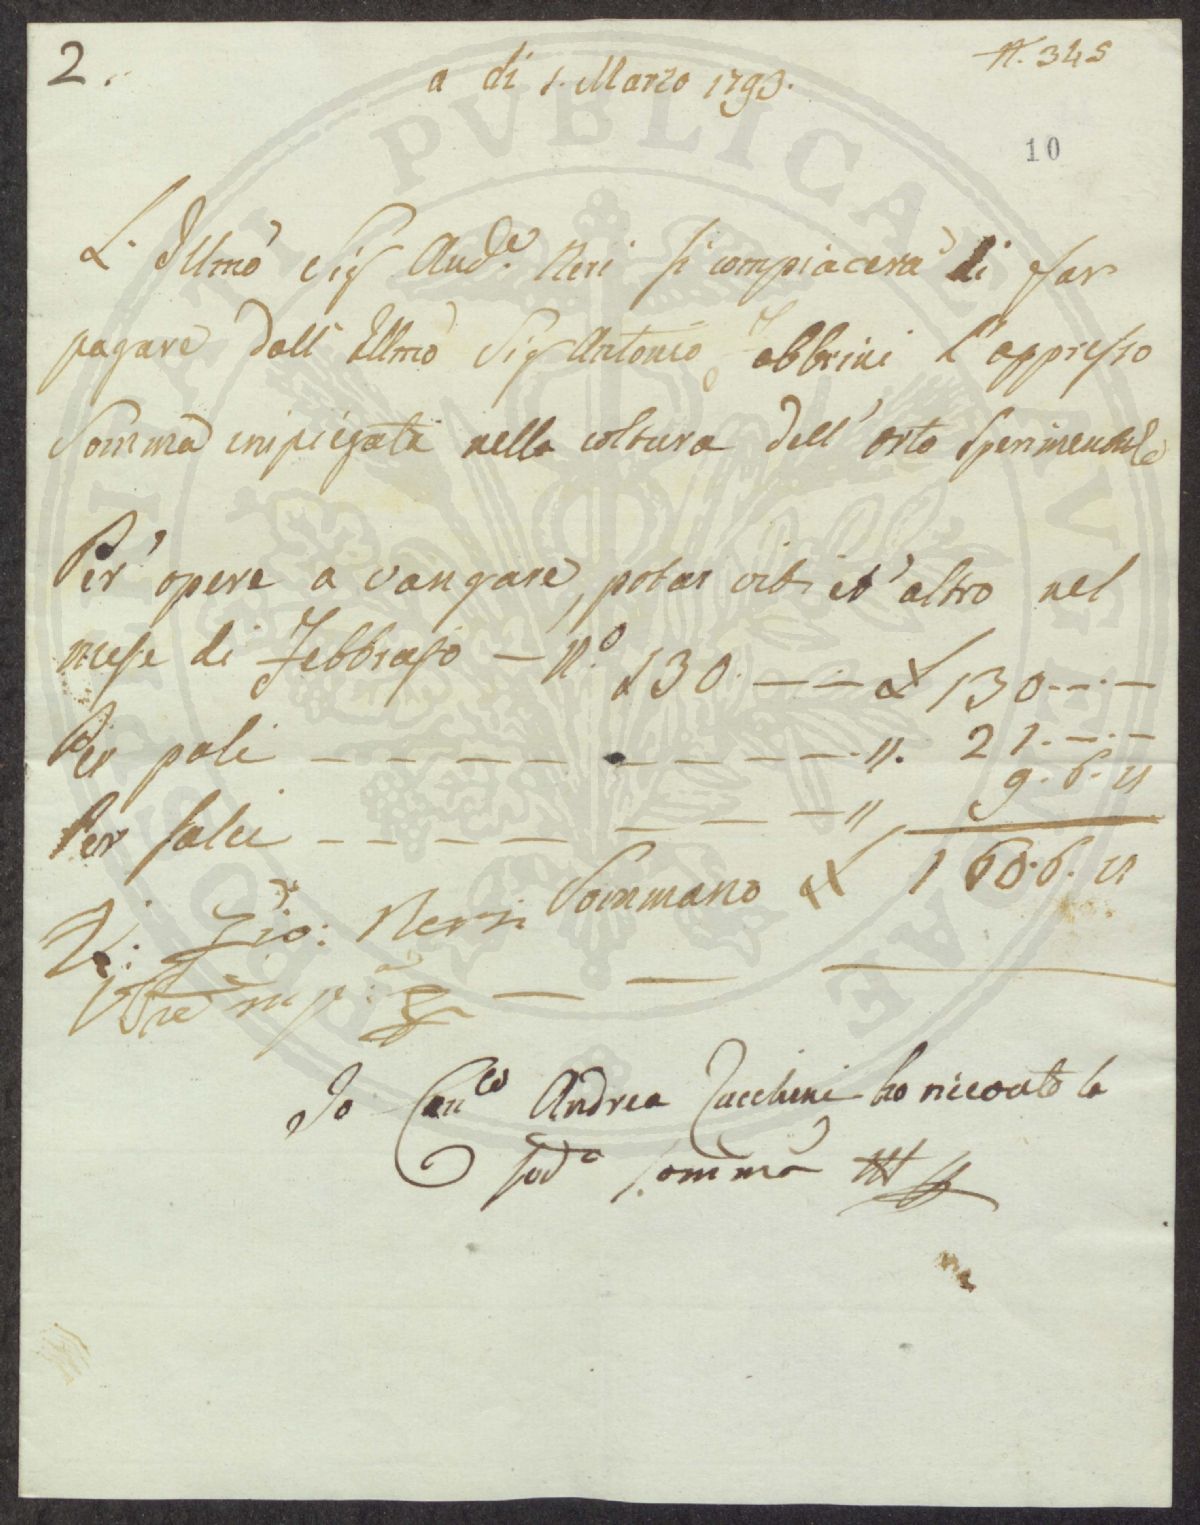 2.
a di 1. Marzo 1793.
N. 345
10
L. Illmo Sig Aud.e Neri si compiacerà di far
pagare dall' Illmo Sig Antonio Fabbrini l'appresso
Somma impiegata nella coltura dell' orto Sperimentale
Per opere a vangare, potar viti et altro nel
mese di Febbrajo — N.o 130. — — £ 130. — . —
Per pali — — — — — — — — — — — ". 21. — . —
Per salci — — — — — — — — " 9. 6. "
Sommano £ 160. 6. "
V: Gio: Neri
Io Can.co Andrea Zucchini ho ricevuto la
sud.a somma